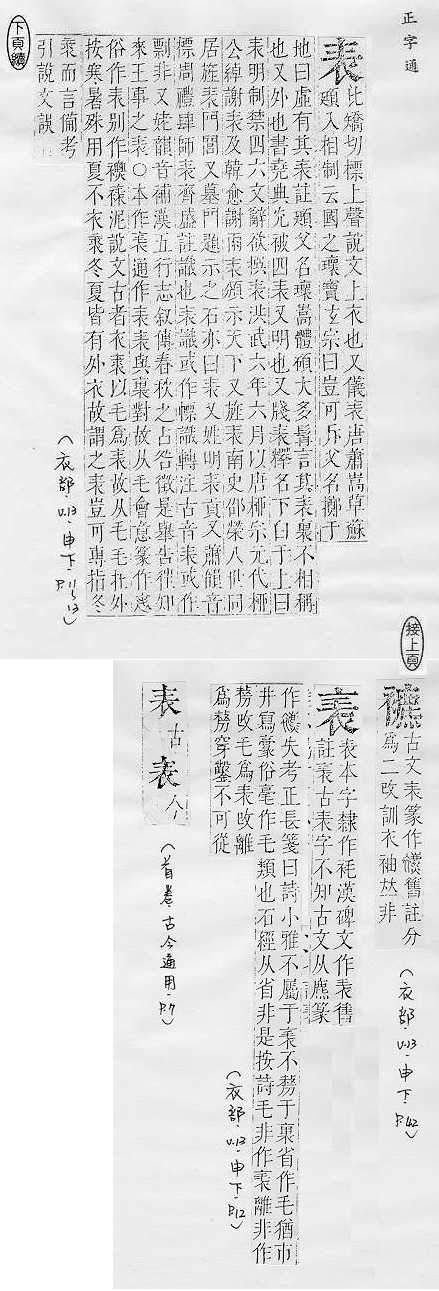 正字通
表 比矯切標上聲說文上衣也又儀表唐蕭嵩草蘇
頲入相制云國之瓌寶玄宗曰豈可斥父名擲于
地曰虛有其表註頲父名瓌嵩體碩大多髯言其表裏不相稱
也又外也書堯典光被四表又明也又牋表釋名下白于上曰
表明制禁四六文辭欲撰表洪武六年六月以唐柳宗元代柳
公綽謝表及韓愈謝雨表頒示天下又旌表南史邵榮八世同
居旌表門閭又墓門題示之石亦曰表又姓明表貢又蕭韻音
標周禮肆師表齊盛註識也表識或作幖識轉注古音表或作
剽非又韻音補漢五行志敘傳春秋之占咎徵是舉告往知
來王事之表○本作𧘝通作表表與裏對故从毛會意篆作
俗作表別作泥說文古者衣裘以毛爲表故从毛毛在外
按寒暑殊用夏不衣裘冬夏皆有外衣故謂之表豈可專指冬
裘而言備考
引說文誤
(衣部.v.13.申下.P.11~12)
下頁續
接上頁
襛 古文表篆作舊註分
爲二改訓衣袖非
(衣部.v.13.申下.P.42)
𧘝 表本字隸作𧘝漢碑文作表舊
註𧘝古表字不知古文从麃篆
作失考正長箋曰詩小雅不屬于𧘝不離于裏省作毛猶市
井寫豪俗毫作毛類也石經从省非是按詩毛非作𧘝離非作
改毛爲表改離
爲穿鑿不可從
(衣部.v.13.申下.P.12)
𧘝古表今
(首卷古今通用.P.7)